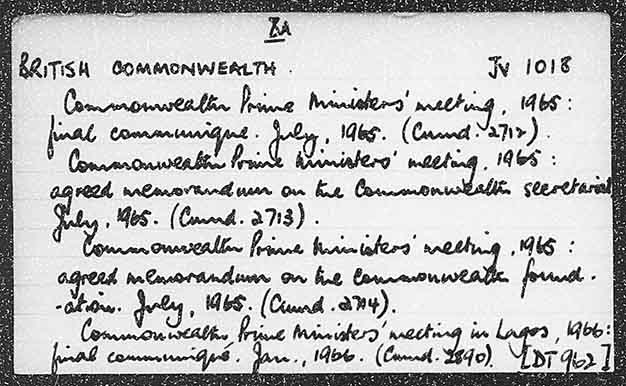 BA
BRITISH COMMONWEALTH. JV 1018
Commonwealth Prime Ministers' meeting, 1965:
final communique. July, 1965. (Cmnd. 2712).
Commonwealth Prime Ministers' meeting, 1965:
agreed memorandum on the Commonwealth secretariat
July, 1965. (Cmnd. 2713).
Commonwealth Prime Ministers' meeting, 1965:
agreed memorandum on the Commonwealth found-
-ation. July, 1965. (Cmnd. 2714).
Commonwealth Prime Ministers' meeting in Lagos, 1966:
final communiqué. Jan., 1966. (Cmnd. 2890). [DT 962]